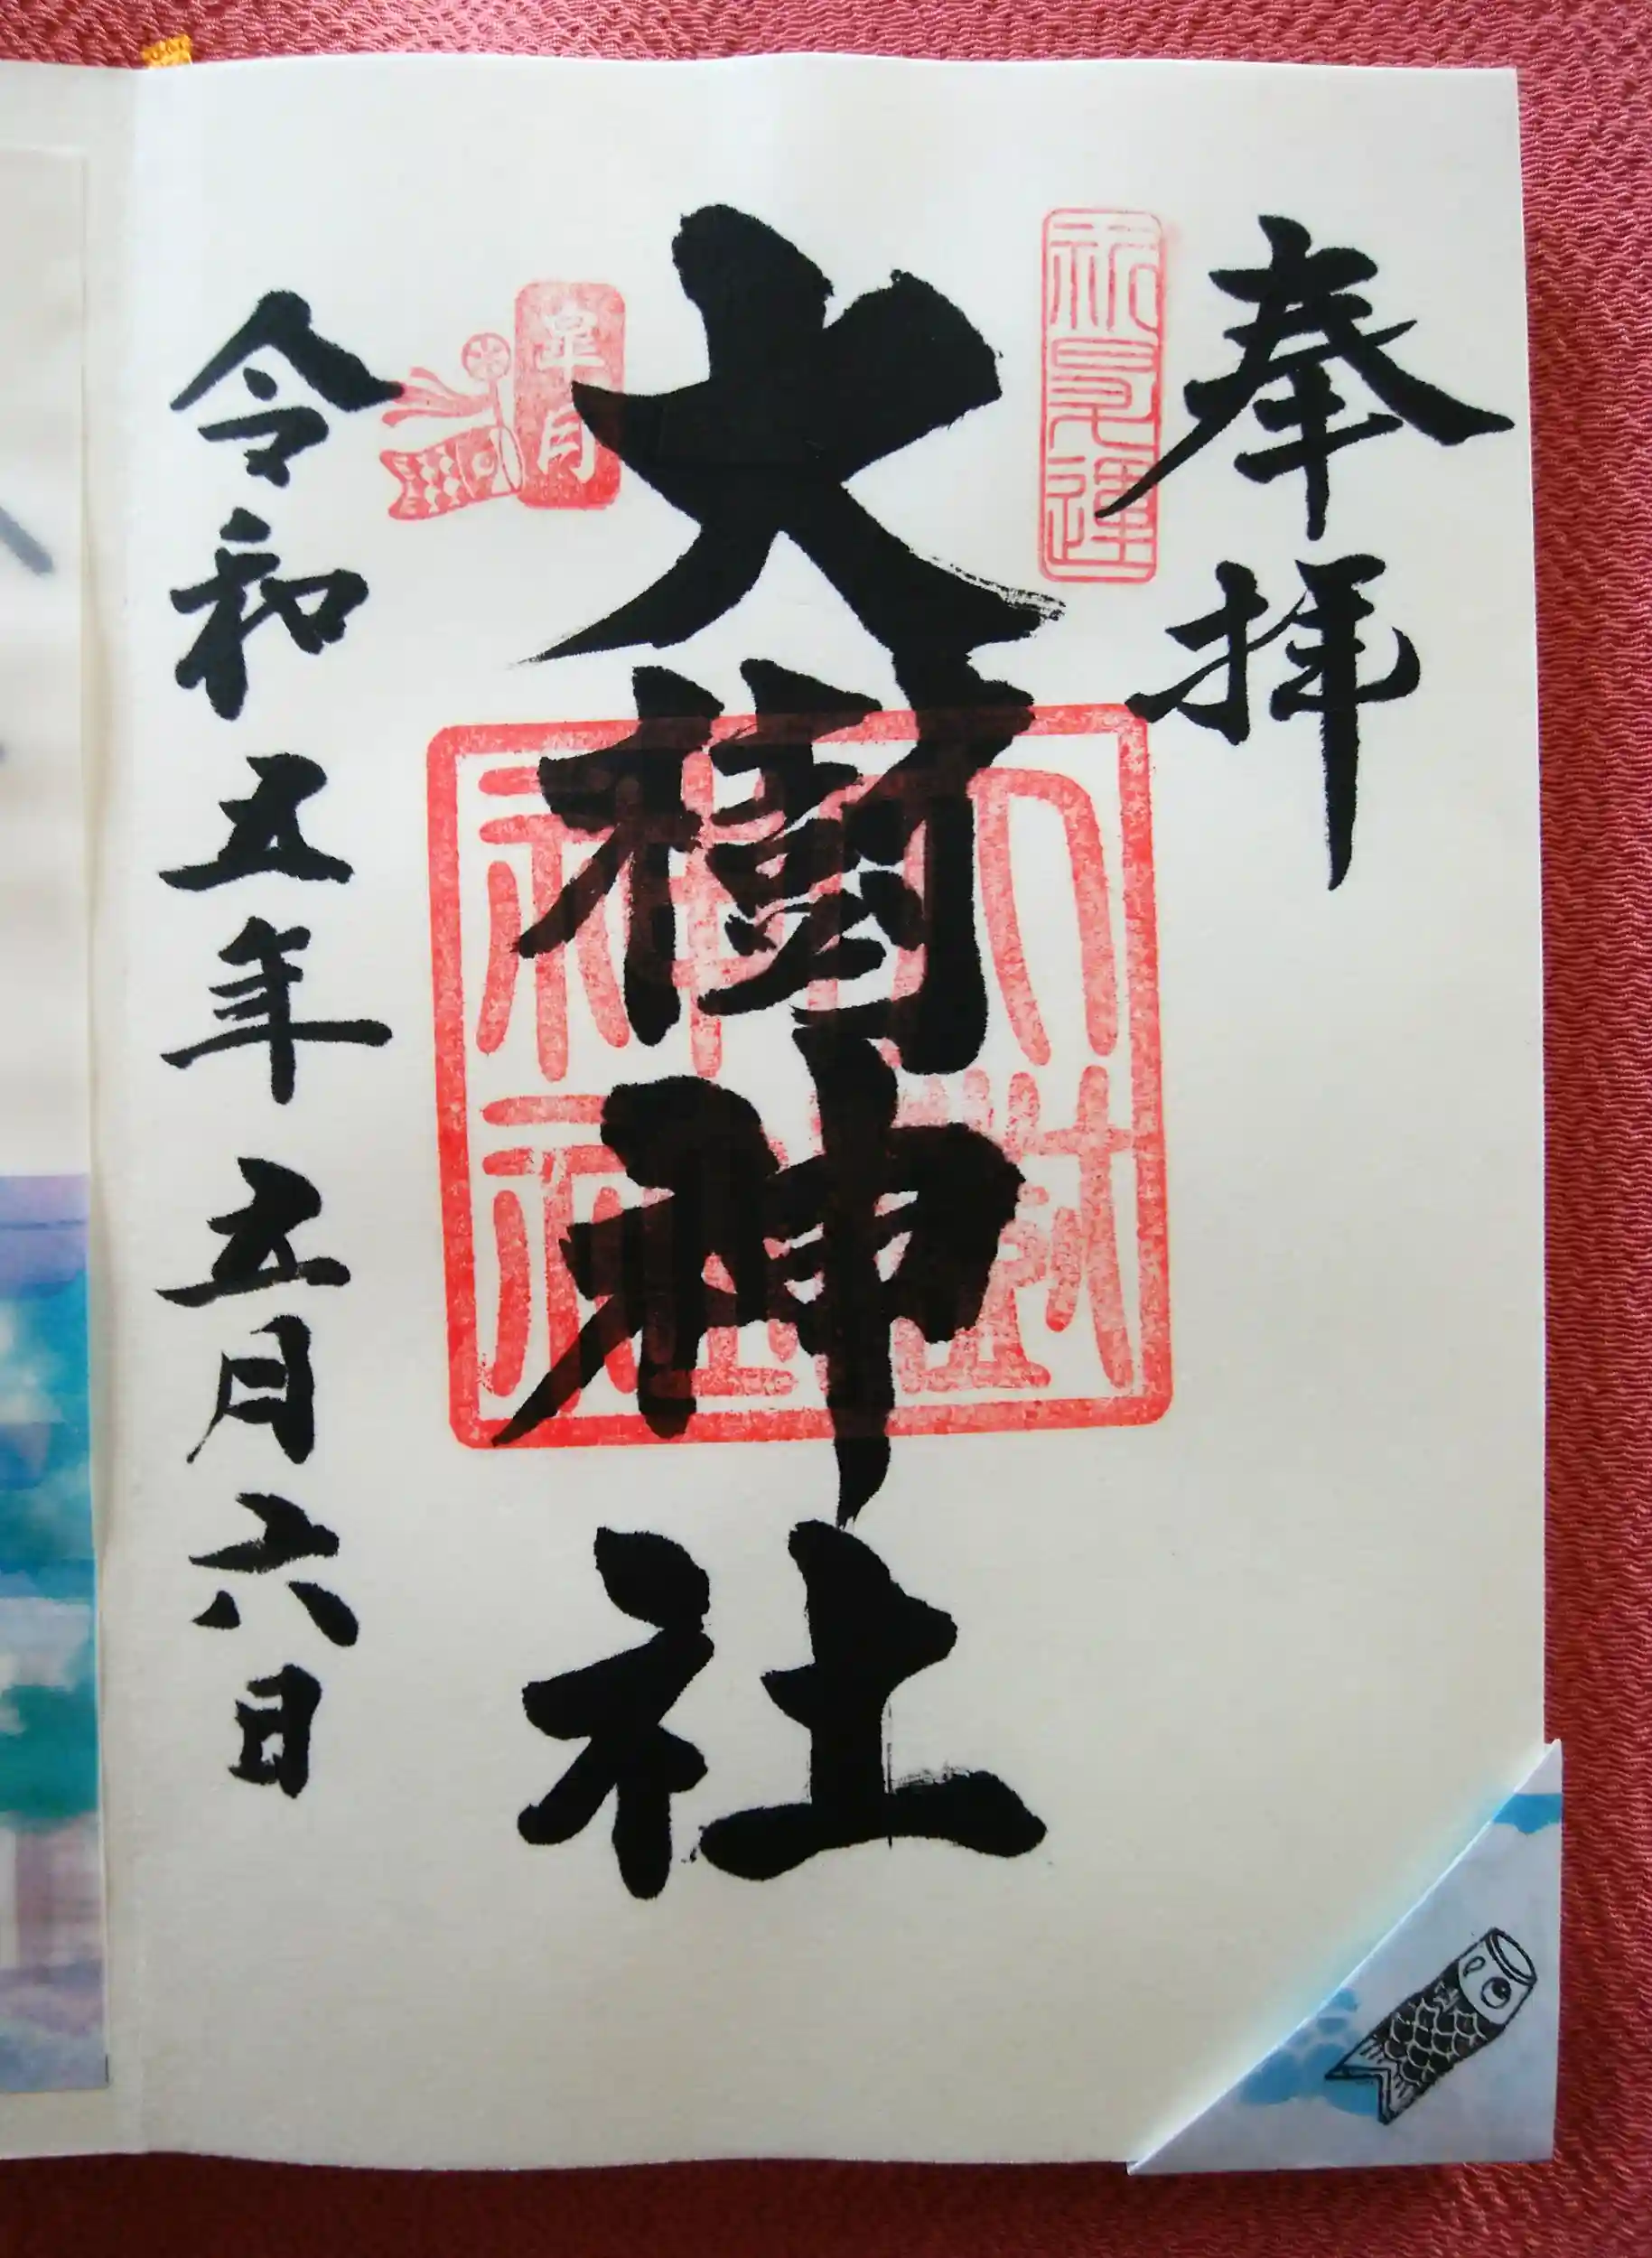 奉拝
大樹神社
皐月
大樹神社
令和五年五月六日